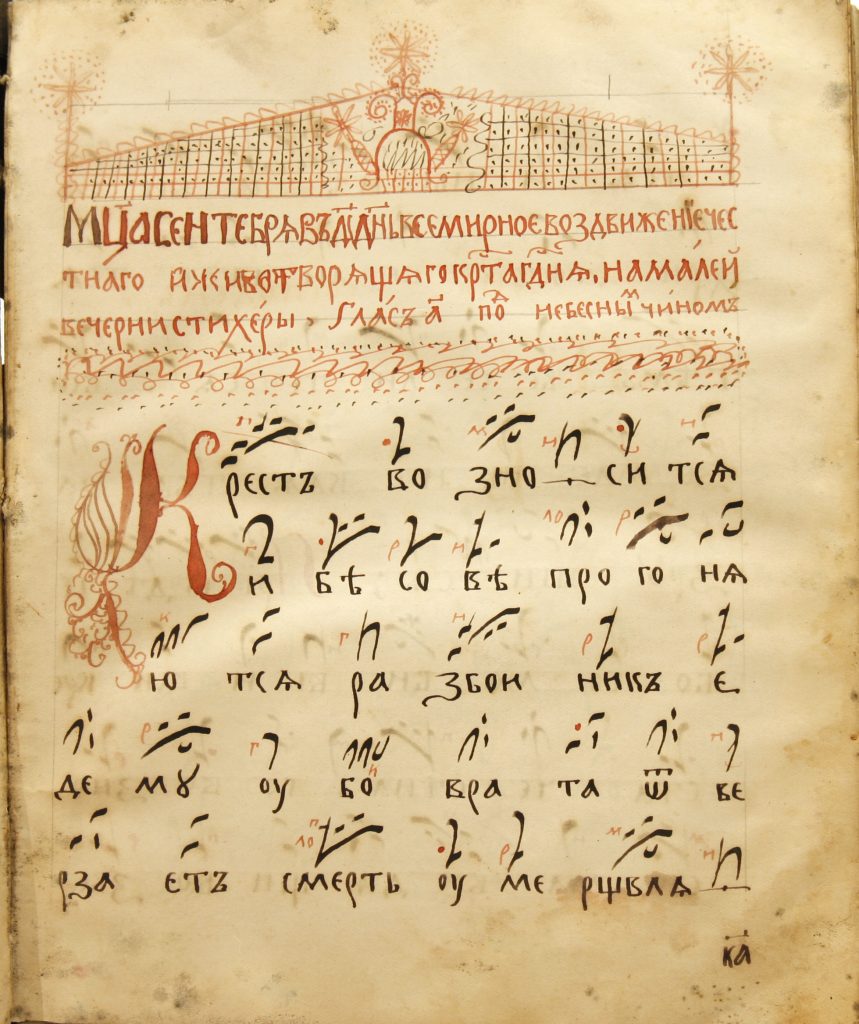 Мц҃а сентебря въ д҃і дн҃ь всемирное воздвиженїе чес
тнаго и животворящяго крⷭ҇та гдⷭ҇ня. на малѣй
вечерни стихе́ры, глⷭасъ а҃ поⷣ небеснымъ чи́номъ
Крестъ возносится
и бѣсове прогоня
ются разбоиникъ є
демꙋ оубо врата ѿве
рзаєтъ смерть оумершвля
ка